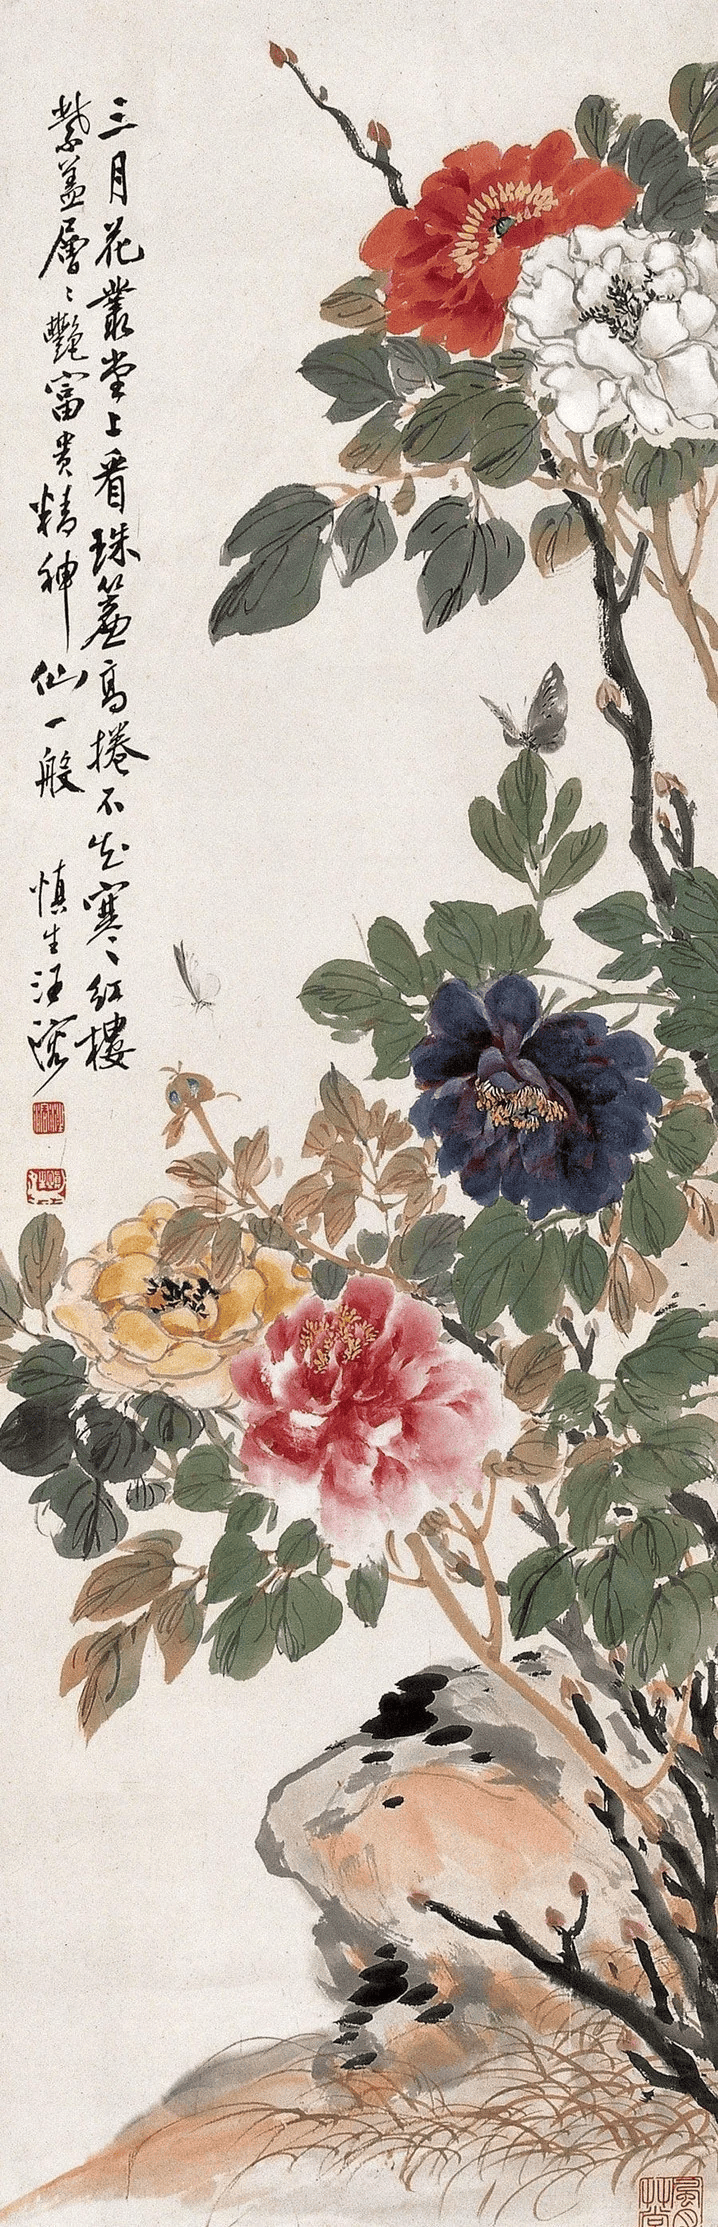 三月花叢堂上看珠簾高捲不知寒〻紅樓
紫蓋層〻艷富貴精神仙一般
慎生汪溶